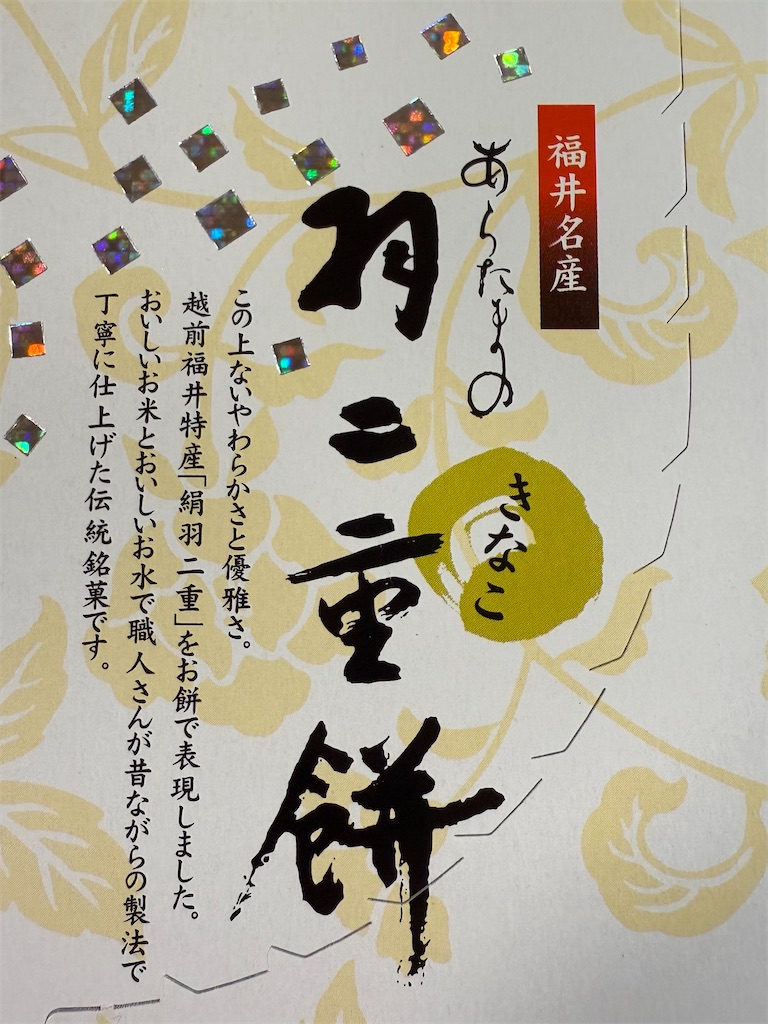 福井名産
あらたまの
羽二重餅
きなこ
この上ないやわらかさと優雅さ。
越前福井特産「絹羽二重」をお餅で表現しました。
おいしいお米とおいしいお水で職人さんが昔ながらの製法で
丁寧に仕上げた伝統銘菓です。